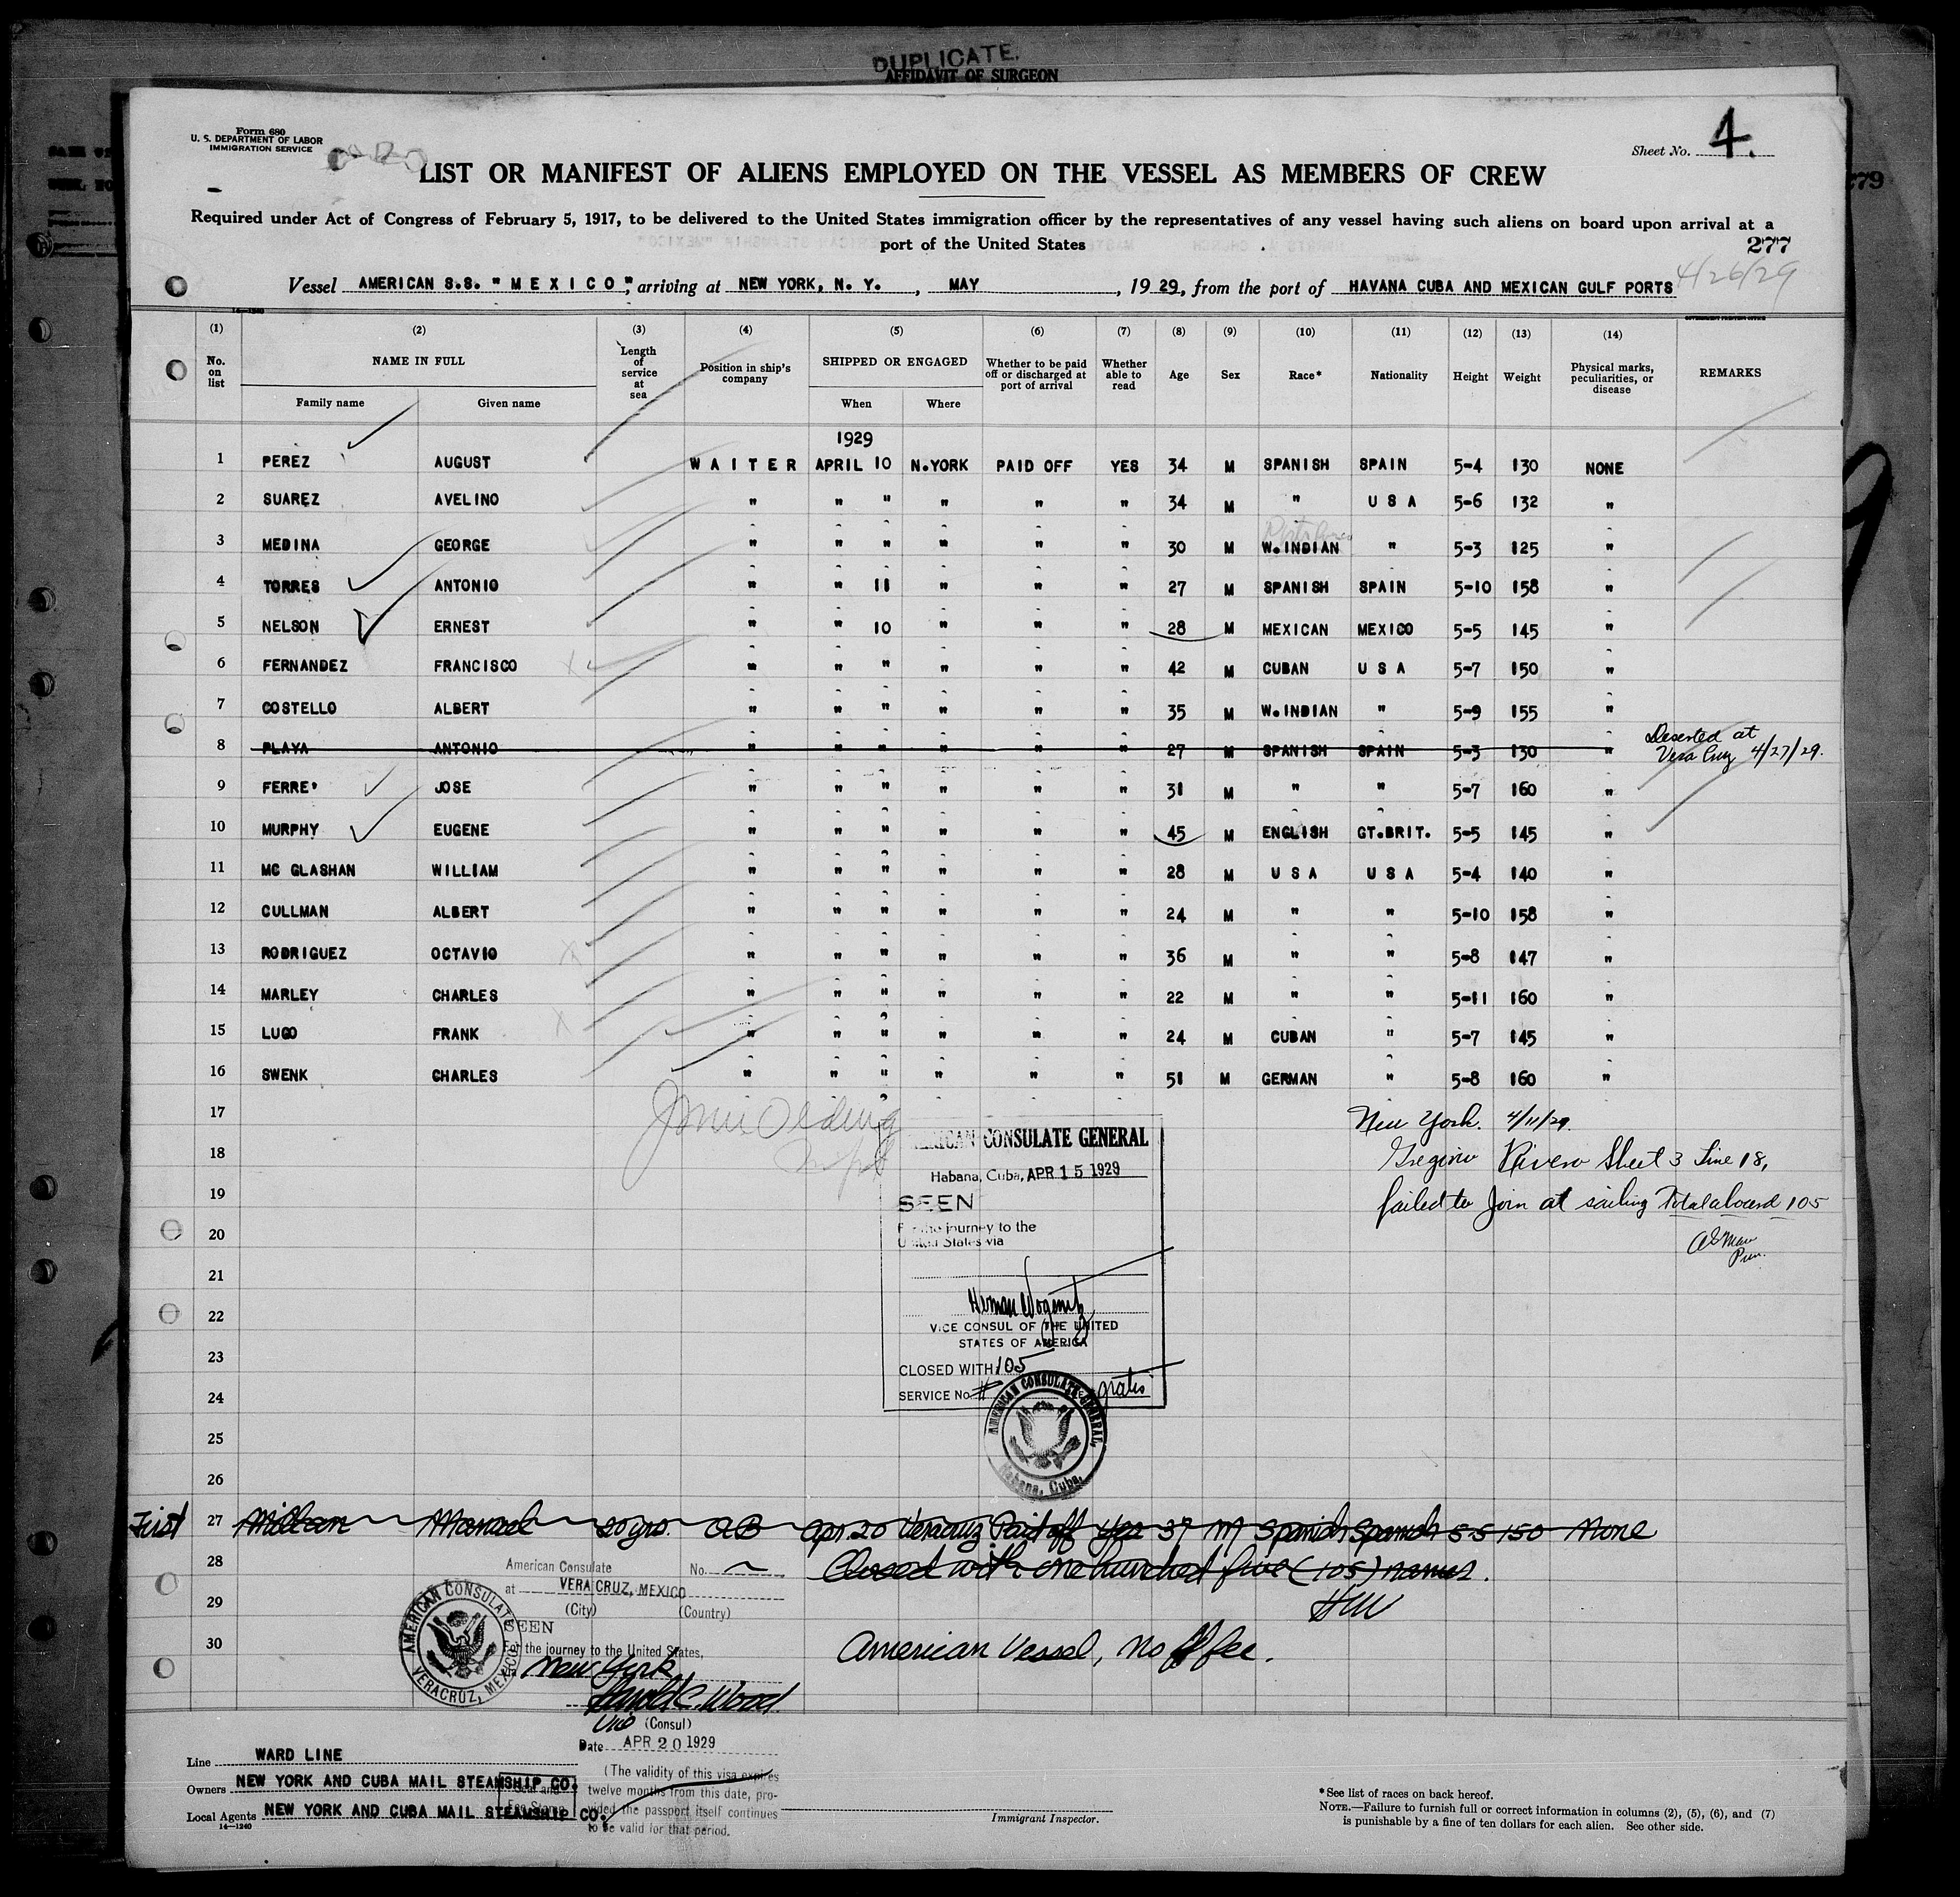 DUPLICATE.
AFFIDAVIT OF SURGEON
Form 680
U. S. DEPARTMENT OF LABOR
IMMIGRATION SERVICE
Sheet No. 4.
LIST OR MANIFEST OF ALIENS EMPLOYED ON THE VESSEL AS MEMBERS OF CREW
Required under Act of Congress of February 5, 1917, to be delivered to the United States immigration officer by the representatives of any vessel having such aliens on board upon arrival at a
port of the United States
277
279
4/26/29
Vessel AMERICAN S.S. "MEXICO", arriving at NEW YORK, N. Y., MAY, 1929, from the port of HAVANA CUBA AND MEXICAN GULF PORTS
(1) (2) (3) (4) (5) (6) (7) (8) (9) (10) (11) (12) (13) (14)
No. on list NAME IN FULL Length of service at sea Position in ship's company SHIPPED OR ENGAGED Whether to be paid off or discharged at port of arrival Whether able to read Age Sex Race* Nationality Height Weight Physical marks, peculiarities, or disease REMARKS
Family name Given name When Where
1929
1 PEREZ AUGUST WAITER APRIL 10 N.YORK PAID OFF YES 34 M SPANISH SPAIN 5-4 130 NONE
2 SUAREZ AVELINO " " " " " " 34 M " U S A 5-6 132 "
3 MEDINA GEORGE " " " " " " 30 M W.INDIAN " 5-3 125 "
4 TORRES ANTONIO " " 11 " " " 27 M SPANISH SPAIN 5-10 158 "
5 NELSON ERNEST " " 10 " " " 28 M MEXICAN MEXICO 5-5 145 "
6 FERNANDEZ FRANCISCO " " " " " " 42 M CUBAN U S A 5-7 150 "
7 COSTELLO ALBERT " " " " " " 35 M W.INDIAN " 5-9 155 "
8 PLAYA ANTONIO " " " " " " 27 M SPANISH SPAIN 5-3 130 " Deserted at Vera Cruz 4/27/29.
9 FERRE' JOSE " " " " " " 31 M " " 5-7 160 "
10 MURPHY EUGENE " " " " " " 45 M ENGLISH GT.BRIT. 5-5 145 "
11 MC GLASHAN WILLIAM " " " " " " 28 M U S A U S A 5-4 140 "
12 CULLMAN ALBERT " " " " " " 24 M " " 5-10 158 "
13 RODRIGUEZ OCTAVIO " " " " " " 36 M " " 5-8 147 "
14 MARLEY CHARLES " " " " " " 22 M " " 5-11 160 "
15 LUGO FRANK " " " " " " 24 M CUBAN " 5-7 145 "
16 SWENK CHARLES " " " " " " 51 M GERMAN " 5-8 160 "
17 New York. 4/11/29.
18 Rivero Sheet 3 Line 18,
19 failed to Join at sailing Total aboard 105
20
21
22
23
24
25
26
AMERICAN CONSULATE GENERAL
Habana, Cuba, APR 15 1929
SEEN
For the journey to the
United States via
VICE CONSUL OF THE UNITED
STATES OF AMERICA
CLOSED WITH 105
SERVICE No. # gratis
AMERICAN CONSULATE GENERAL,
Habana, Cuba.
First 27 Millan Manuel 20 yrs. AB Apr 20 Veracruz Paid off Yes 37 M Spanish Spanish 5-5 150 None
28 Closed with one hundred five (105) names.
29 HW
30 American Vessel, No fee.
American Consulate No.
at VERA CRUZ, MEXICO
(City) (Country)
SEEN
For the journey to the United States,
New York
Harold C. Wood
Vice (Consul)
Date APR 20 1929
(The validity of this visa expires
twelve months from this date, pro-
vided the passport itself continues
to be valid for that period.
AMERICAN CONSULATE
VERACRUZ, MEXICO
Line WARD LINE
Owners NEW YORK AND CUBA MAIL STEAMSHIP CO.
Local Agents NEW YORK AND CUBA MAIL STEAMSHIP CO.
14—1240
Immigrant Inspector.
*See list of races on back hereof.
NOTE.—Failure to furnish full or correct information in columns (2), (5), (6), and (7)
is punishable by a fine of ten dollars for each alien. See other side.